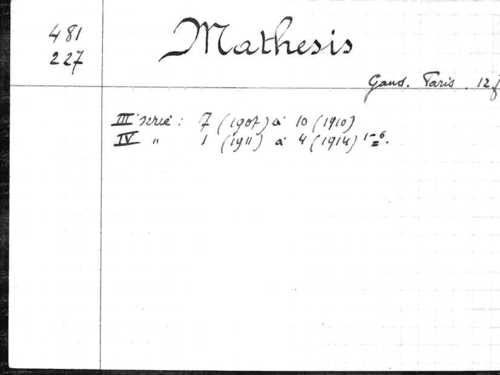 481
227
Mathesis
Gand. Paris. 12f
III serie: 7 (1907) à 10 (1910)
IV " 1 (1911) à 4 (1914) 1-6.